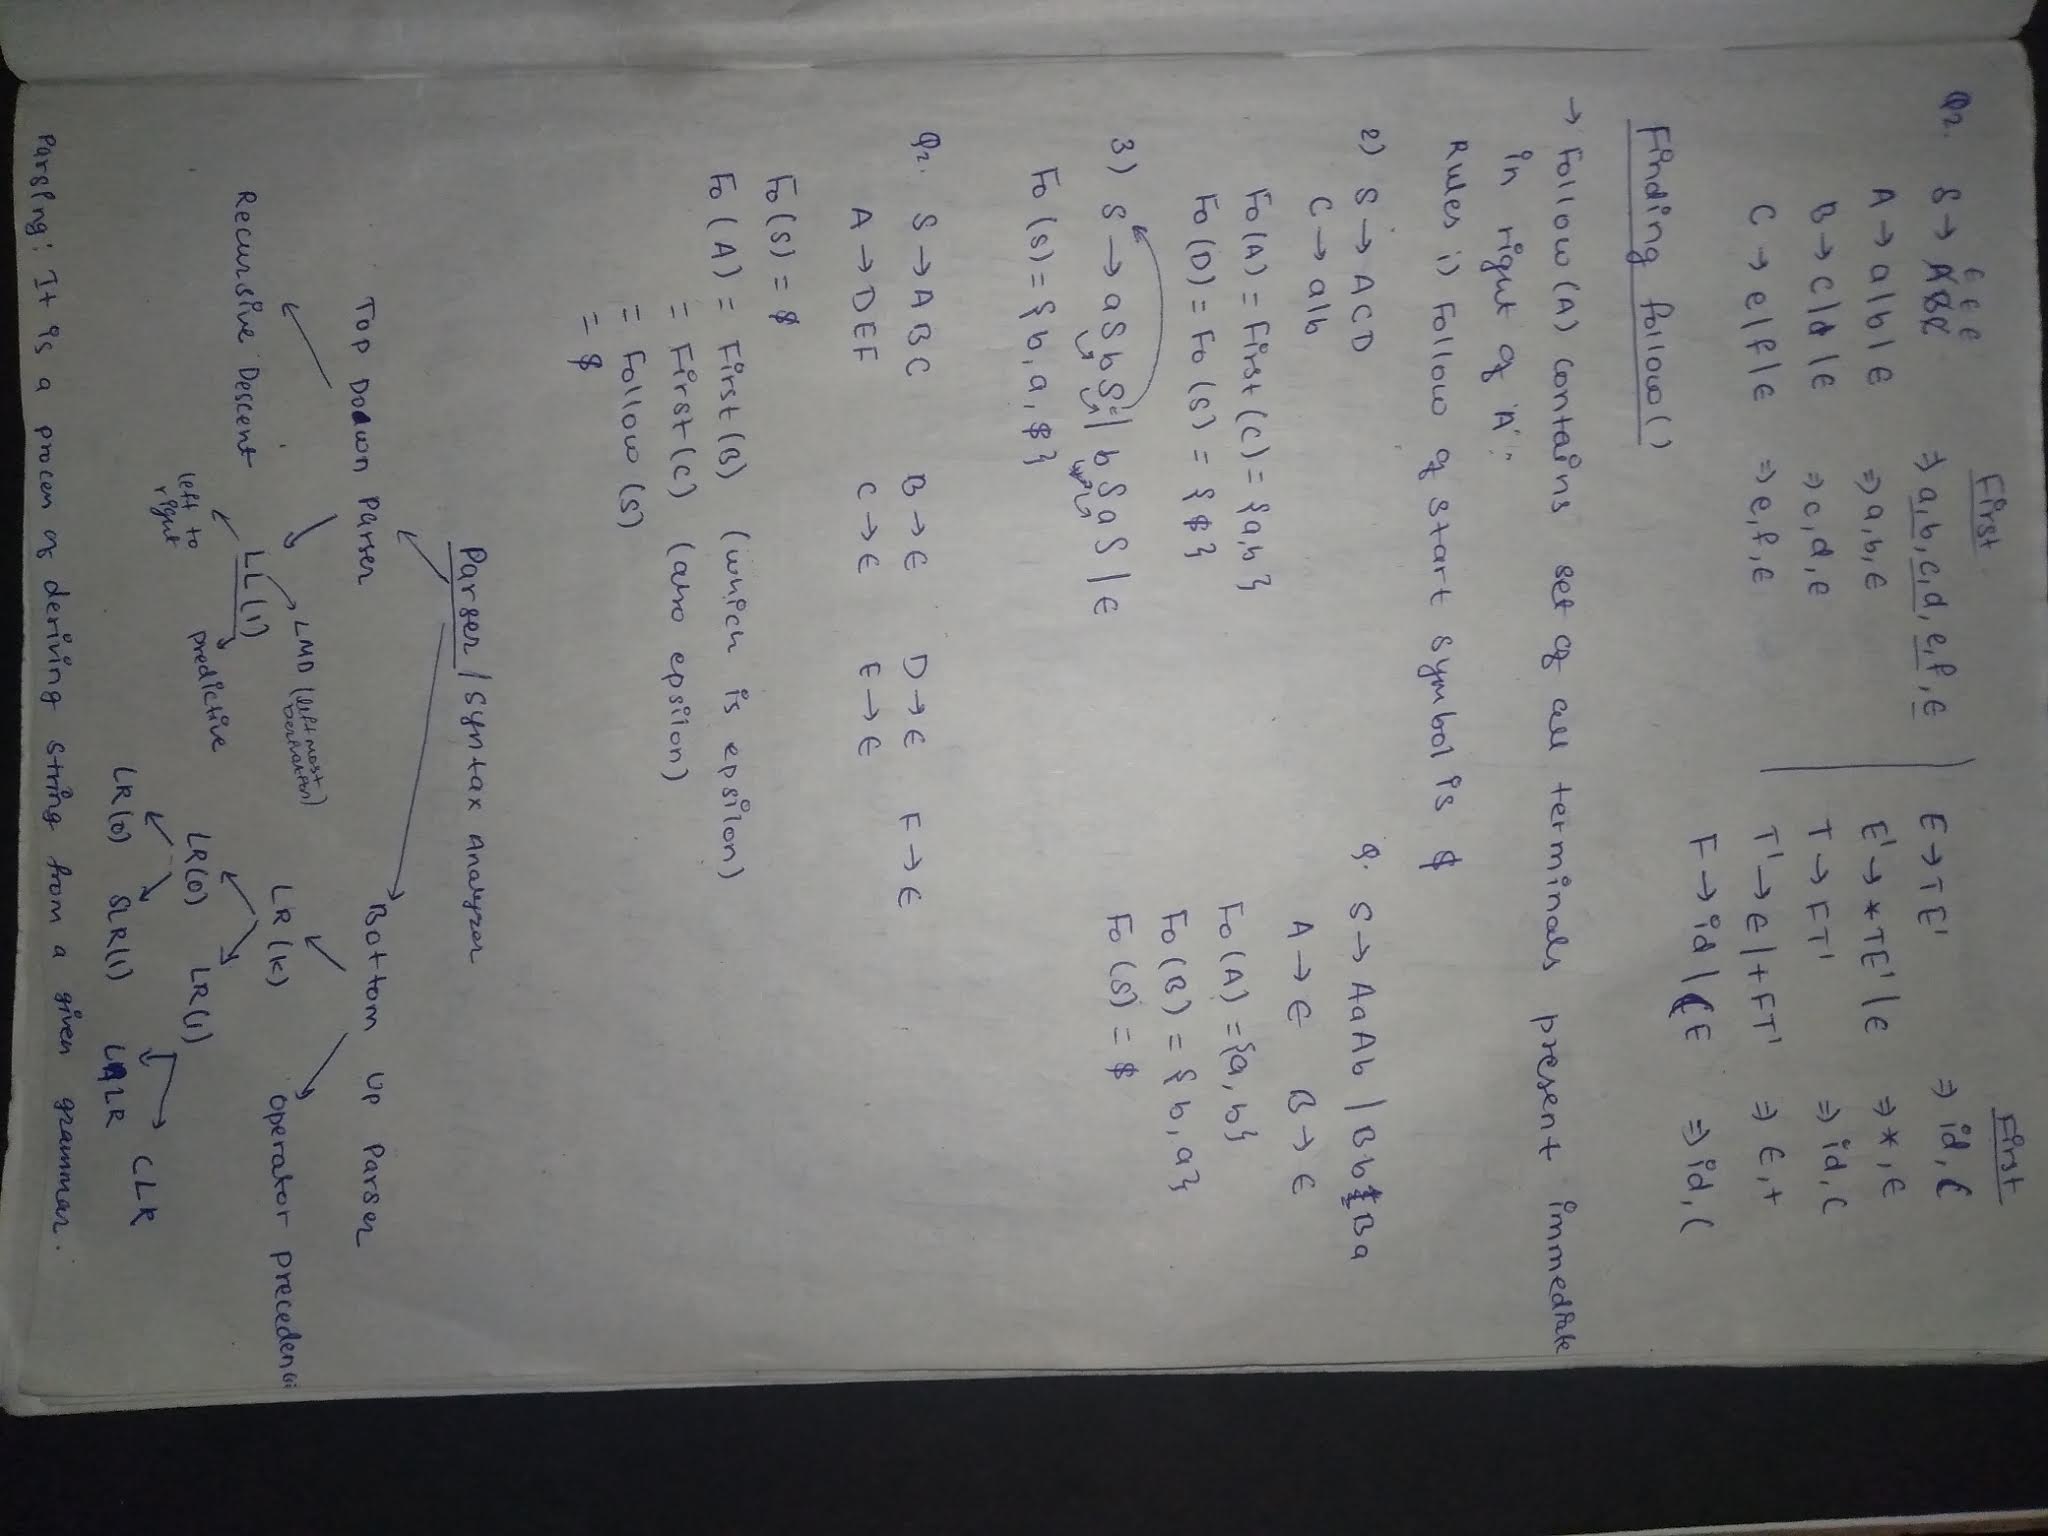 First
Q2. S → ABC ⇒ a,b,c,d,e,f,ϵ
ϵ ϵ ϵ
A → a|b|ϵ ⇒ a,b,ϵ
B → c|d|ϵ ⇒ c,d,e
C → e|f|ϵ ⇒ e,f,ϵ
First
E → TE' ⇒ id, (
E' → *TE'|ϵ ⇒ *,ϵ
T → FT' ⇒ id, (
T' → ϵ|+FT' ⇒ ϵ,+
F → id|(E ⇒ id, (
Finding follow()
→ Follow(A) contains set of all terminals present immediate
in right of 'A':
Rules i) Follow of start symbol is $
2) S → ACD
C → a|b
Fo(A) = First(C) = {a,b}
Fo(D) = Fo(S) = {$}
3) S → aSbS | bSaS | ϵ
Fo(S) = {b, a, $}
Q. S → AaAb | BbBa
A → ϵ B → ϵ
Fo(A) = {a, b}
Fo(B) = {b, a}
Fo(S) = $
Q2. S → ABC B → ϵ D → ϵ F → ϵ
A → DEF C → ϵ E → ϵ
Fo(S) = $
Fo(A) = First(B) (which is epsilon)
= First(C) (also epsilon)
= Follow(S)
= $
Parser / Syntax Analyzer
Top Down Parser Bottom Up Parser
LMD (left most
Derivation)
LR(K) Operator precedence
Recursive Descent LL(1)
left to
right
predictive
LR(0) LR(1)
LR(0) SLR(1) LALR CLR
Parsing: It is a process of deriving string from a given grammar.